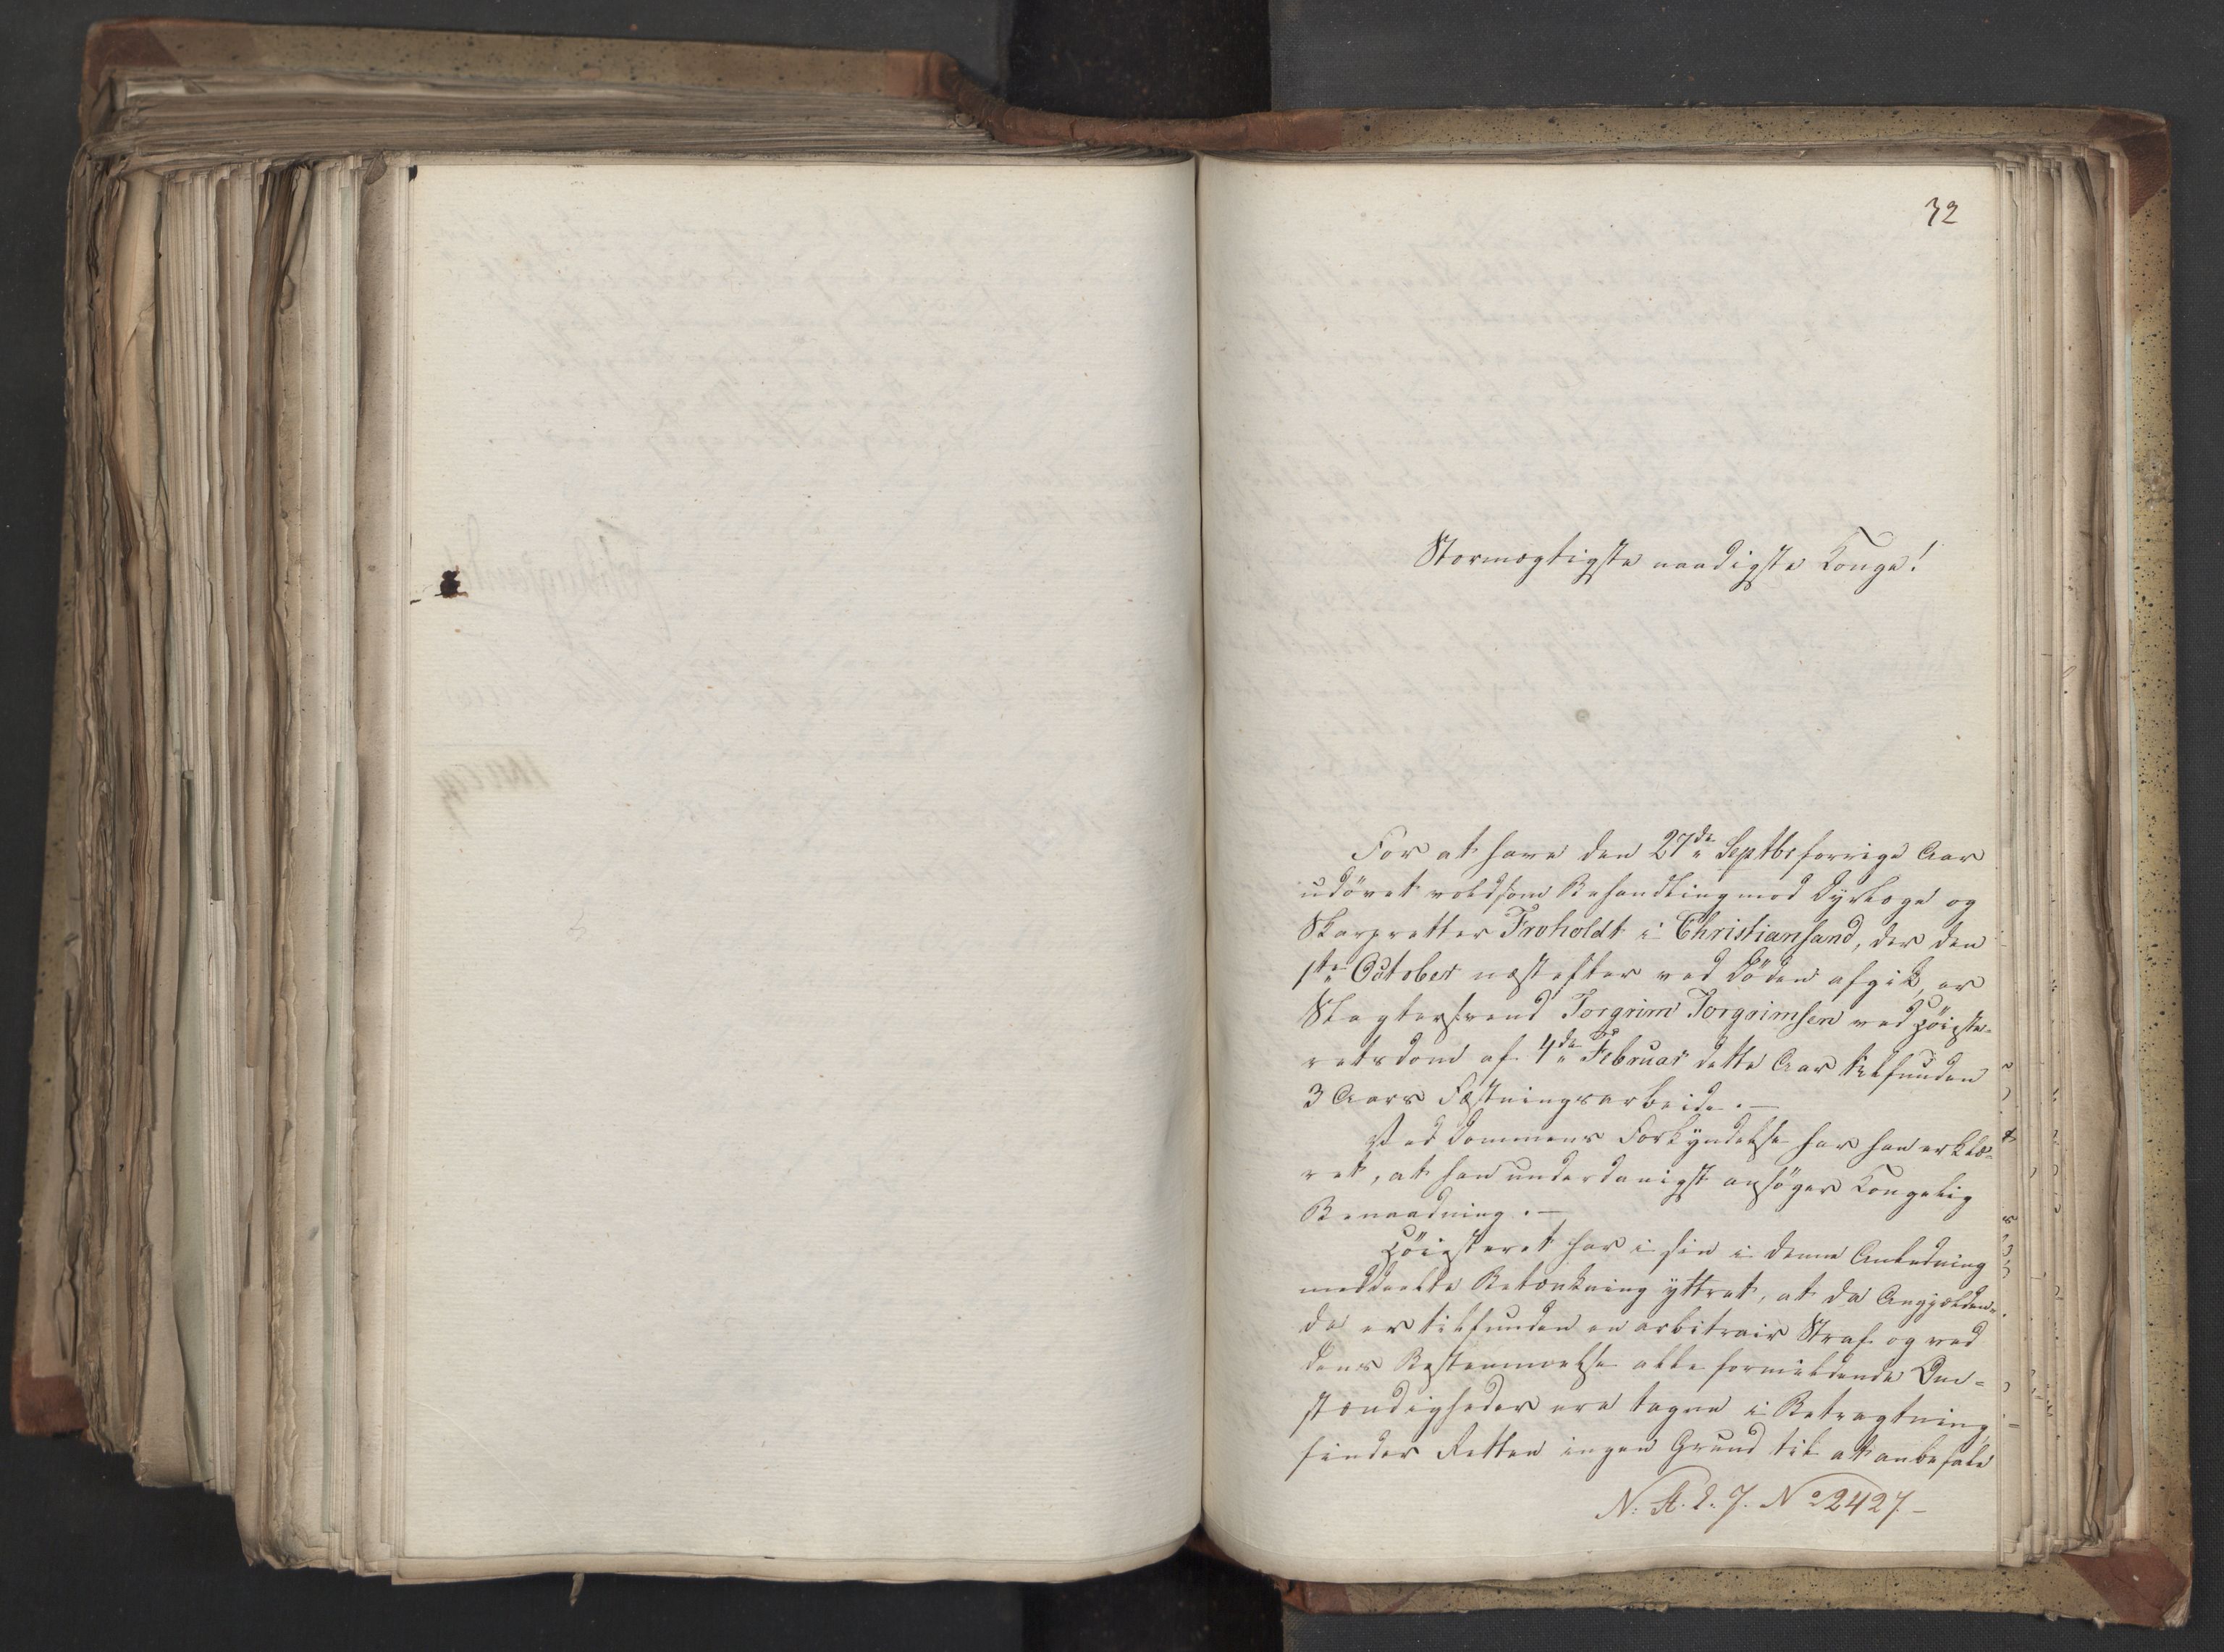 32
Stormægtigste naadigste Konge!
For at have den 27de Septbr forrige Aar
udövet voldsom Behandling mod Dyrlæge og
Skarpretter Froholdt i Christiansand, der den
1ste October næstefter ved Döden afgik, er
Slagtersvend Torgrim Torgrimsen ved Höieste-
retsdom af 4de Februar dette Aar tilfunden
3 Aars Fæstningsarbeide. —
Ved Dommens Forkyndelse har han erklæ-
ret, at han underdanigst ansöger Kongelig
Benaadning. —
Höiesteret har i sin i denne Anledning
meddeelte Betænkning yttret, at da Angjælden-
de er tilfunden en arbitrair Straf og ved
dens Bestemmelse alle formildende Om-
stændigheder ere tagne i Betragtning,
finder Retten ingen Grund til at anbefale
N. A. L. J. No 2427. –